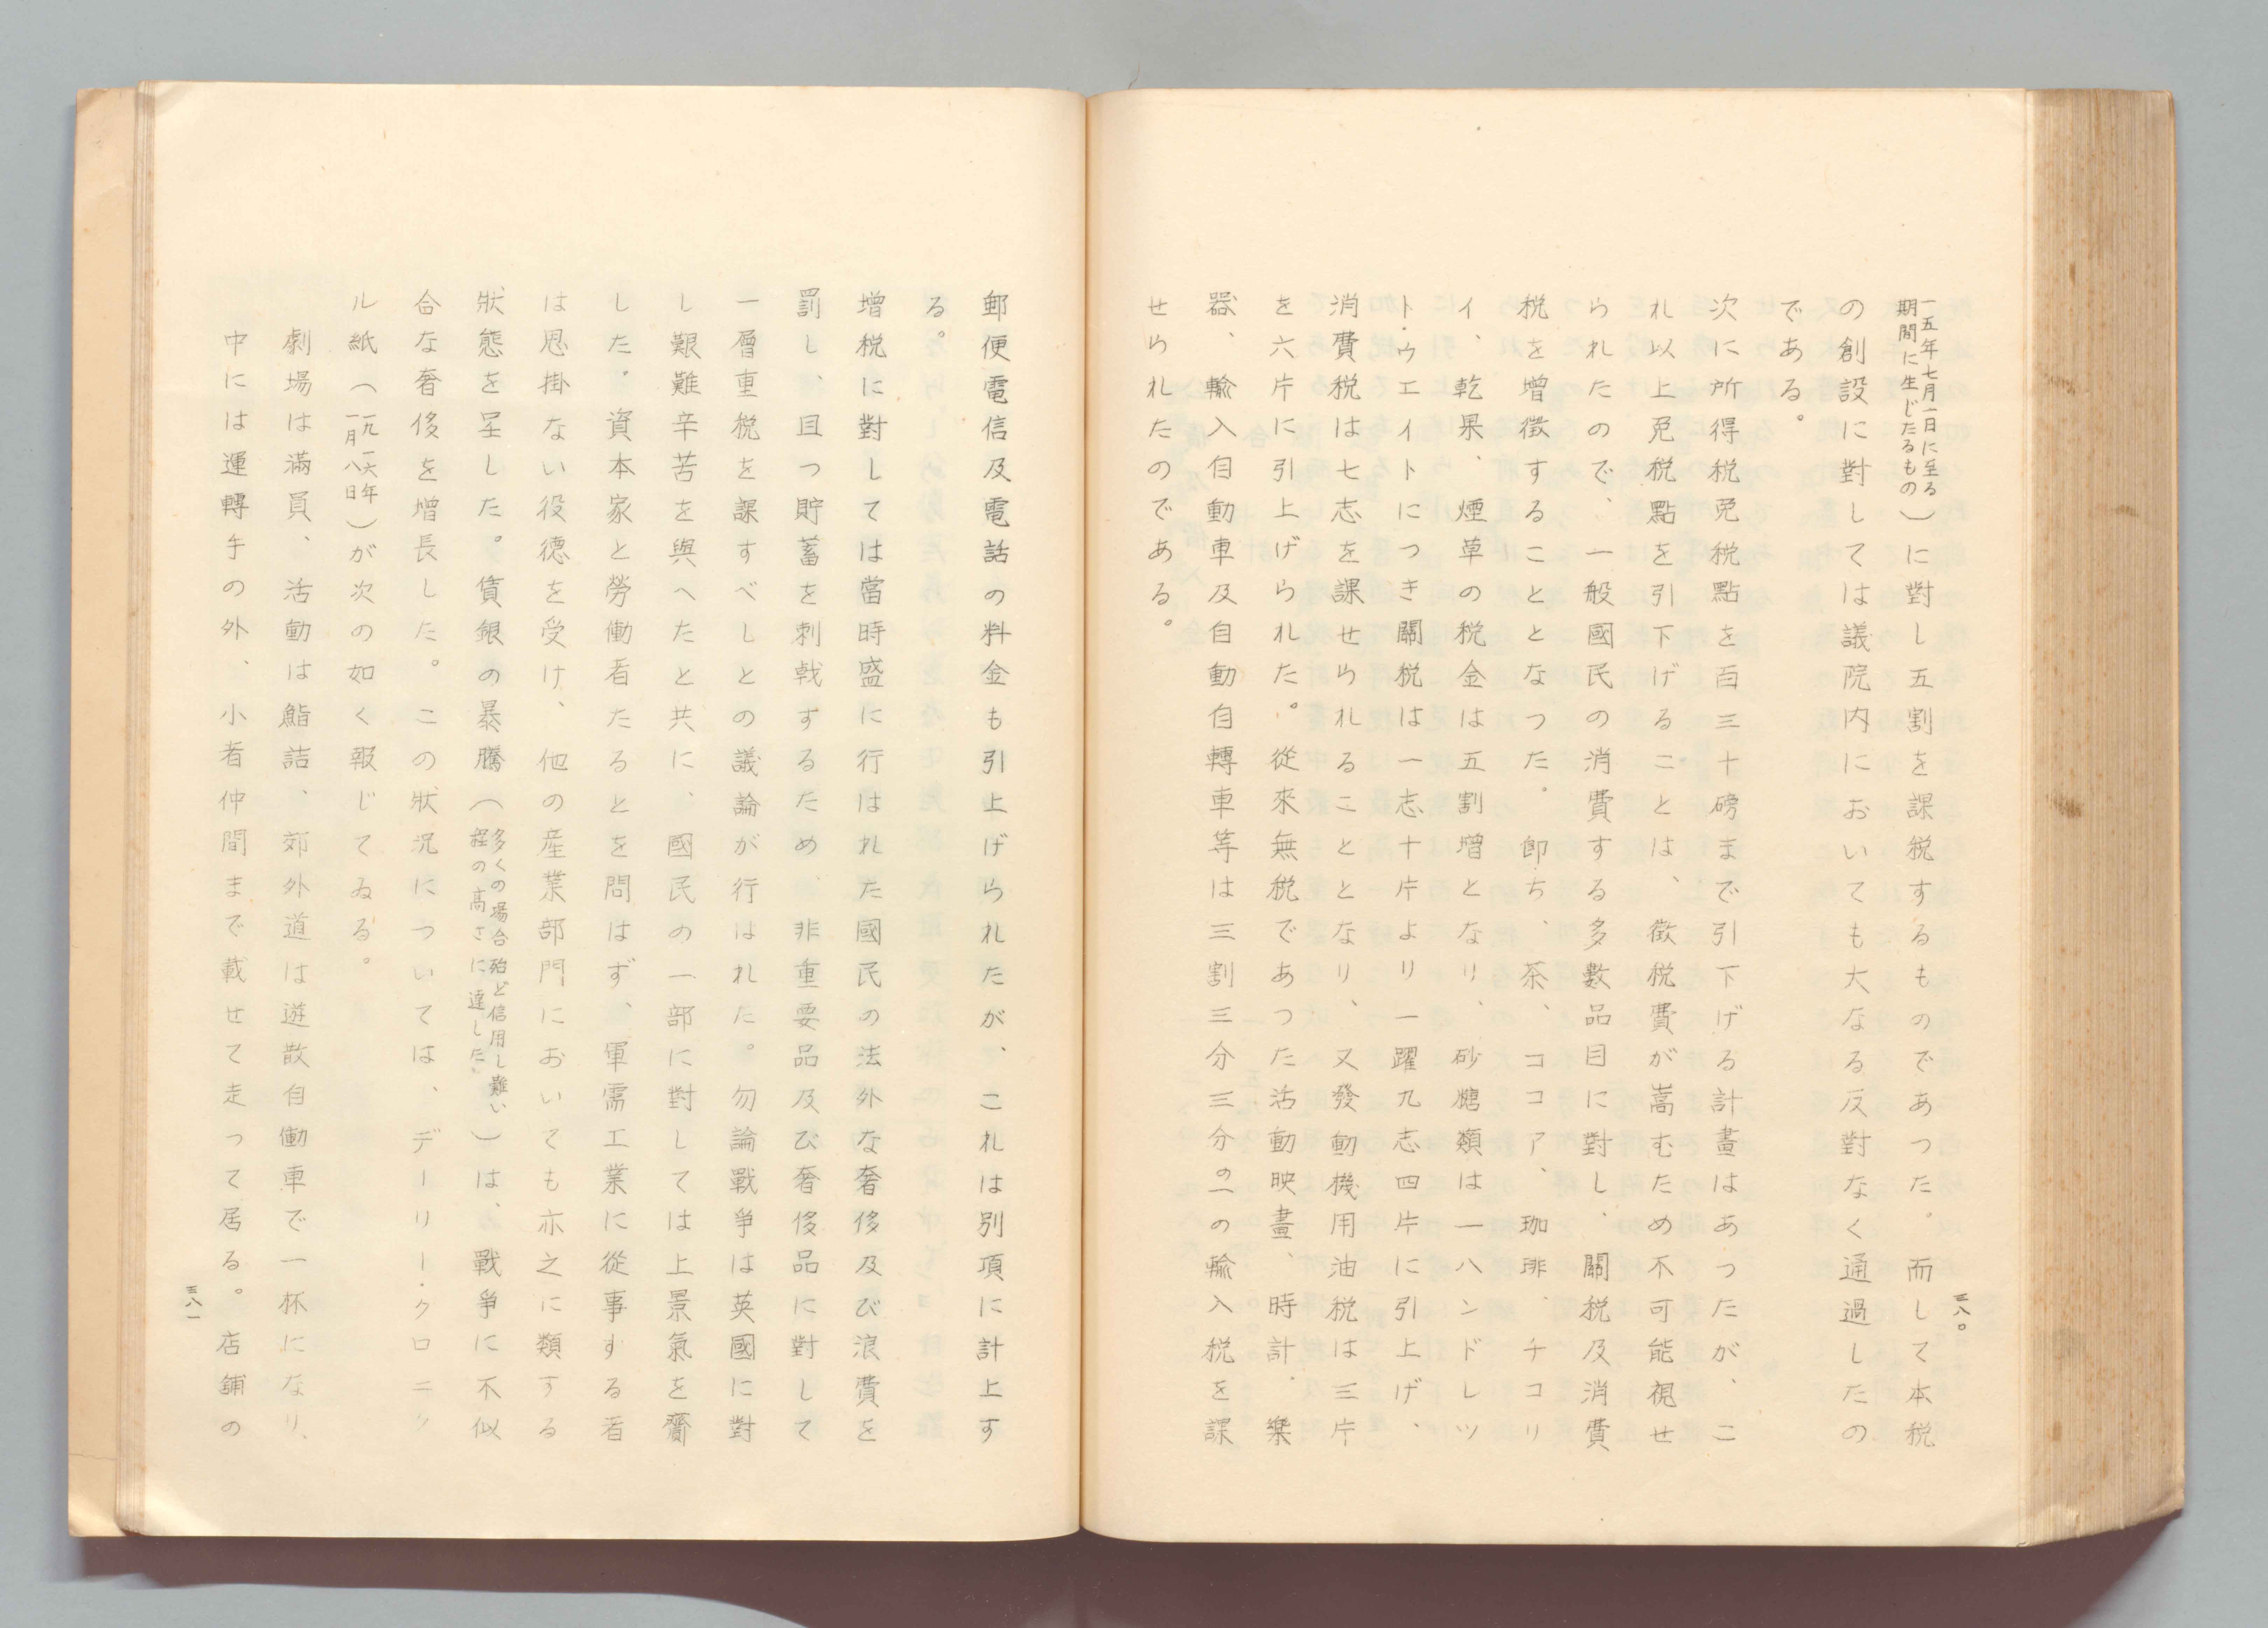 一五年七月一日に至る
期間に生じたるもの)に對し五割を課税するものであつた。而して本税
の創設に對しては議院内においても大なる反對なく通過したの
である。
次に所得税免税點を百三十磅まで引下げる計畫はあつたが、こ
れ以上免税點を引下げることは、徴税費が嵩むため不可能視せ
られたので、一般國民の消費する多數品目に對し、關税及消費
税を增徴することとなつた。卽ち、茶、ココア、珈琲、チコリ
イ、乾果、煙草の税金は五割增となり、砂糖類は一ハンドレツ
ト・ウエイトにつき關税は一志十片より一躍九志四片に引上げ、
消費税は七志を課せられることとなり、又發動機用油税は三片
を六片に引上げられた。從來無税であつた活動映畫、時計、樂
器、輸入自動車及自動自轉車等は三割三分三分の一の輸入税を課
せられたのである。
三八〇
郵便電信及電話の料金も引上げられたが、これは別項に計上す
る。
增税に對しては當時盛に行はれた國民の法外な奢侈及び浪費を
罰し、且つ貯蓄を刺戟するため、非重要品及び奢侈品に對して
一層重税を課すべしとの議論が行はれた。勿論戰爭は英國に對
し艱難辛苦を與へたと共に、國民の一部に對しては上景氣を齎
した。資本家と勞働者たるとを問はず、軍需工業に從事する者
は思掛ない役德を受け、他の産業部門においても亦之に類する
狀態を呈した。賃銀の暴騰(多くの場合殆ど信用し難い
程の高さに達した)は、戰爭に不似
合な奢侈を增長した。この狀況については、デーリー・クロニク
ル紙(一九一六年
一月八日)が次の如く報じてゐる。
劇場は滿員、活動は鮨詰、郊外道は遊散自働車で一杯になり、
中には運轉手の外、小者仲間まで載せて走って居る。店舖の
三八一